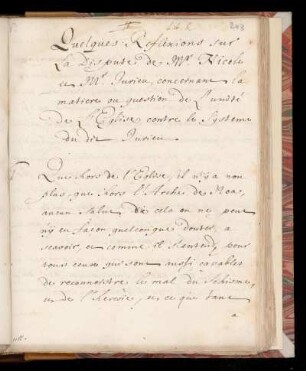 Quelques Reflexions sur
La Dispute de Mr Nicole
et Mr Jurieu, concernant la
matiere ou question de l'unité
de l'Eglise contre le Systeme
du dit Jurieu.
Que hors de l'Eglise, il n'y a non
plus, que hors l'Arche de Noé,
aucun Salut de cela on ne peut
n'y en façon quelconque douter, a
scavoir, et comme il s'entend, pour
tous ceux qui sont aussi capables
de reconnoitre le mal du Schisme,
et de l'heresie, et ce qui tant